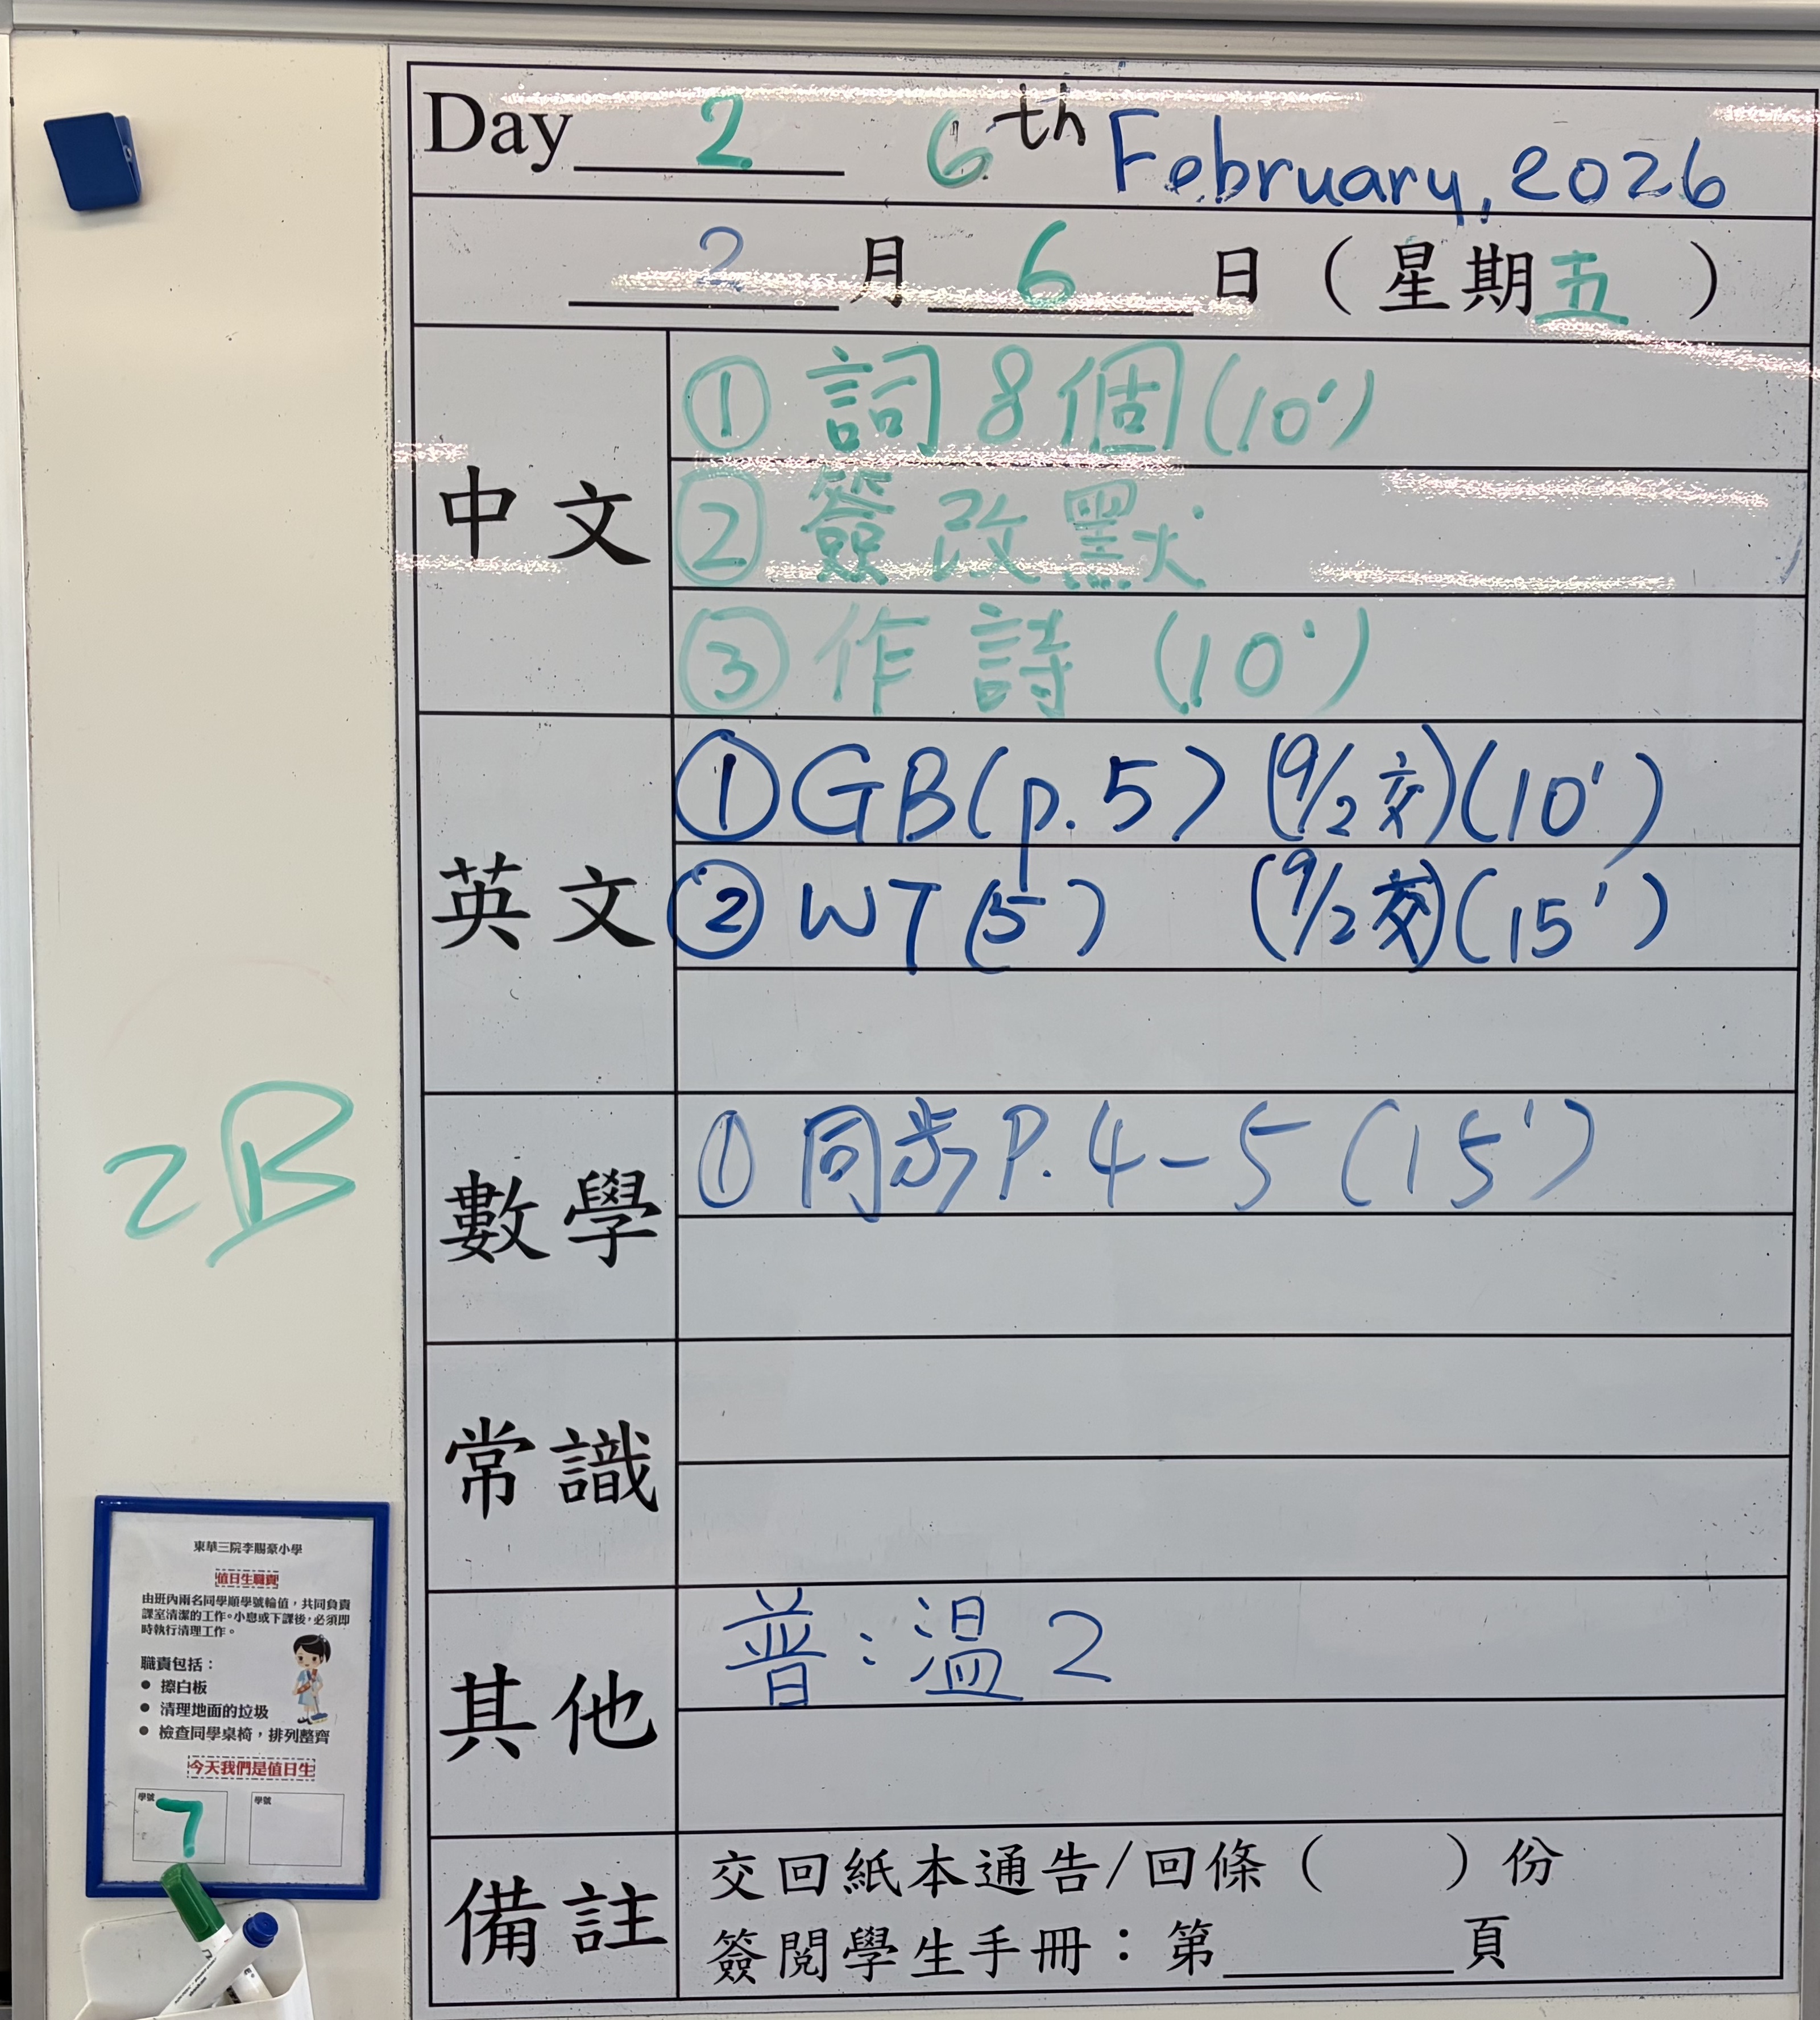 Day 2 6th February, 2026
2 月 6 日 ( 星期五 )
中文
① 詞8個(10')
② 簽改默
③ 作詩 (10')
英文
① GB(p.5) (9/2交)(10')
② WT(5) (9/2交)(15')
數學
① 同步P.4-5 (15')
常識
其他
普：溫2
備註
交回紙本通告/回條 ( ) 份
簽閱學生手冊：第____頁
2B
東華三院李賜豪小學
值日生職責
由班內兩名同學順學號輪值，共同負責
課室清潔的工作。小息或下課後，必須即
時執行清理工作。
職責包括：
● 擦白板
● 清理地面的垃圾
● 檢查同學桌椅，排列整齊
今天我們是值日生
學號 7 學號